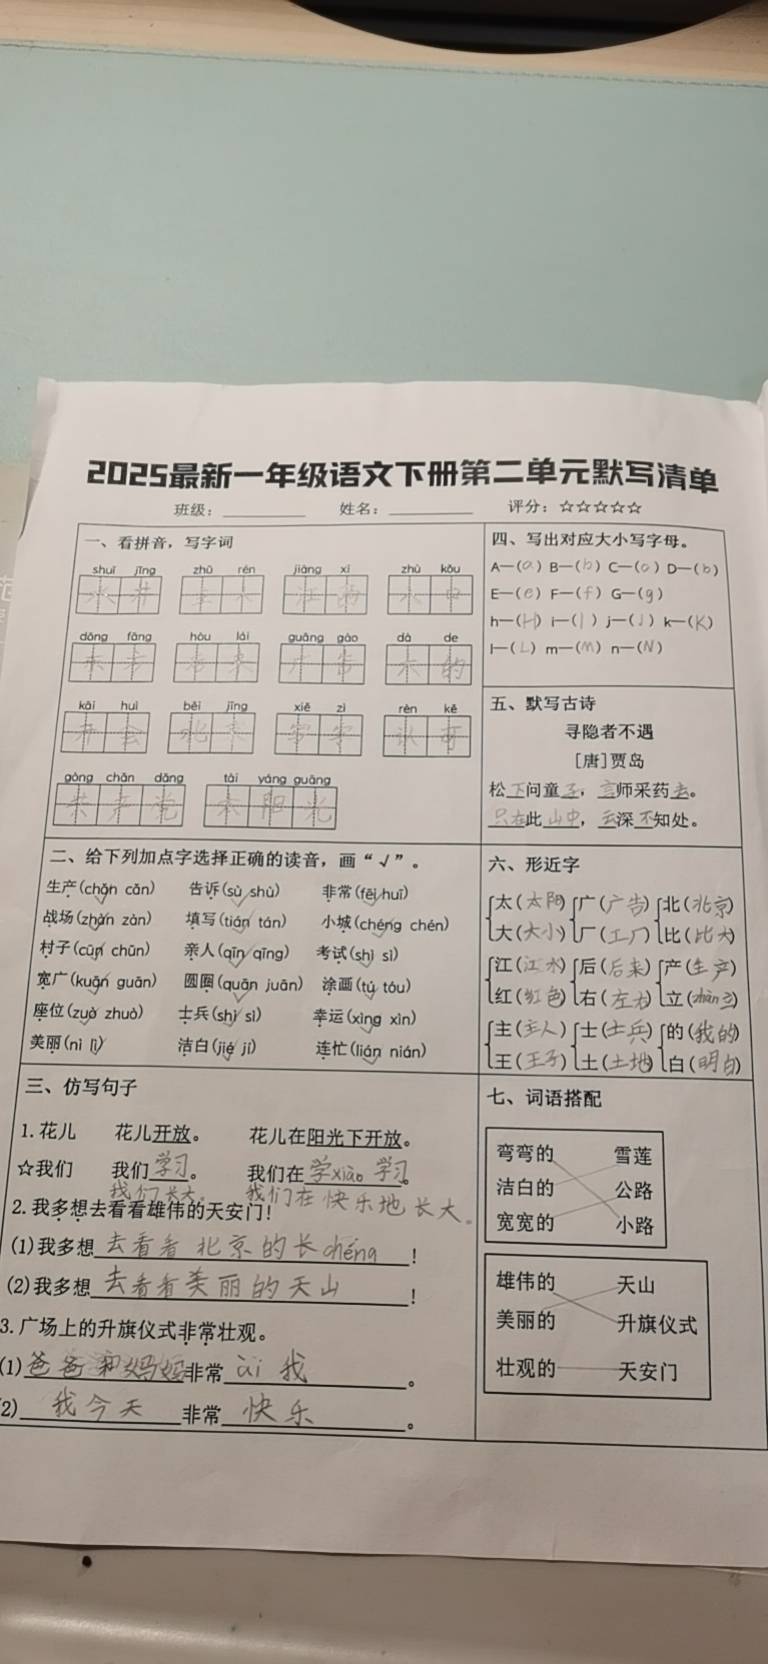 2025最新一年级语文下册第二单元默写清单
班级： 姓名： 评分：☆☆☆☆☆
一、看拼音，写字词
shuǐ jǐng zhǔ rén jiāng xī zhù kǒu
水 井 主 人 江 西
dōng fāng hòu lái guǎng gào dà de
东 方 后 来 广 告 大 的
kāi huì běi jīng xiě zì rèn kě
开 会 北 京 写 字 认 可
gòng chǎn dǎng tài yáng guāng
共 产 党 太 阳 光
二、给下列加点字选择正确的读音，画“√”。
生产(chǎn cǎn) 告诉(sù shù) 非常(fēi huī)
战场(zhàn zàn) 填写(tián tán) 小城(chéng chén)
村子(cūn chūn) 亲人(qīn qīng) 考试(shì sì)
宽广(kuān guān) 圆圈(quān juān) 涂画(tú tóu)
座位(zuò zhuò) 士兵(shì sì) 幸运(xìng xìn)
美丽(nì lì) 洁白(jié jí) 连忙(lián nián)
三、仿写句子
1. 花儿 花儿开放。 花儿在阳光下开放。
☆我们 我们学习。 我们在学xiào学习。
我们长大。 我们在快乐地长大。
2. 我多想去看看雄伟的天安门！
(1)我多想去看看北京的长chéng！
(2)我多想去看看美丽的天山！
3. 广场上的升旗仪式非常壮观。
(1)爸爸和妈妈非常ài我。
(2)我今天非常快乐。
四、写出对应大小写字母。
A—(a) B—(b) C—(c) D—(b)
E—(e) F—(f) G—(g)
h—(H) i—(I) j—(J) k—(K)
l—(L) m—(M) n—(N)
五、默写古诗
寻隐者不遇
[唐]贾岛
松下问童子，言师采药去。
只在此山中，云深不知处。
六、形近字
太(太阳) 广(广告) 北(北京)
大(大小) 厂(工厂) 比(比大)
江(江水) 后(后来) 产(生产)
红(红色) 右(左右) 立(zhàn立)
主(主人) 士(士兵) 的(我的)
王(王子) 土(土地) 白(明白)
七、词语搭配
弯弯的 雪莲
洁白的 公路
宽宽的 小路
雄伟的 天山
美丽的 升旗仪式
壮观的 天安门